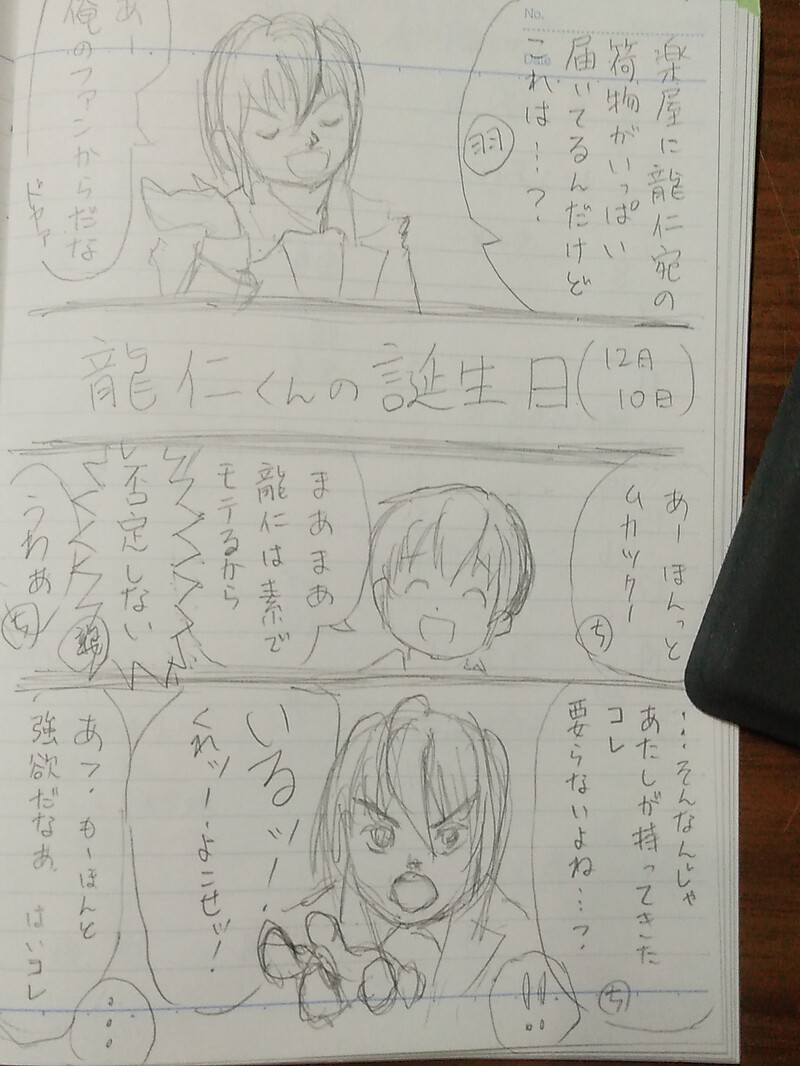 No.
Date
楽屋に龍仁宛の
荷物がいっぱい
届いてるんだけど
これは…?
羽
あー
俺のファンからだな
ドヤァ
龍仁くんの誕生日(12月
10日)
あーほんっと
ムカツクー
ち
まあまあ
龍仁は素で
モテるから
否定しない
うわぁ
ち
…そんなんじゃ
あたしが持ってきた
コレ
要らないよね…?
ち
!!
いるッ!
くれッ!よこせッ!
あっ、もーほんと
強欲だなぁ、はいコレ